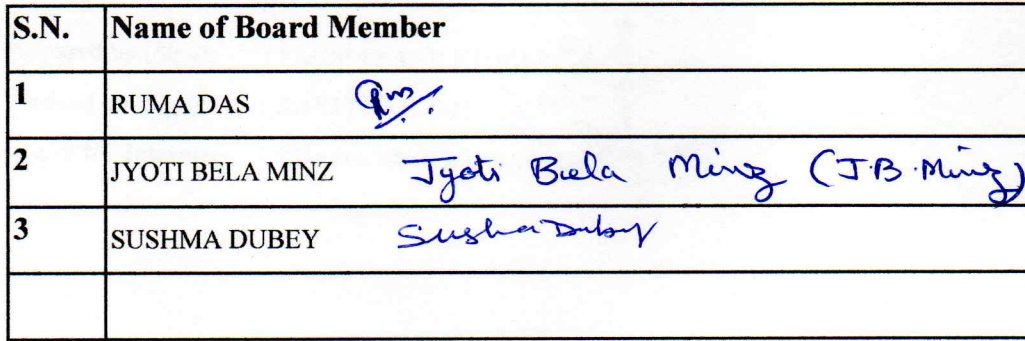 S.N. Name of Board Member
1 RUMA DAS
2 JYOTI BELA MINZ Jyoti Bela Minz (J.B. Minz)
3 SUSHMA DUBEY Sushma Dubey